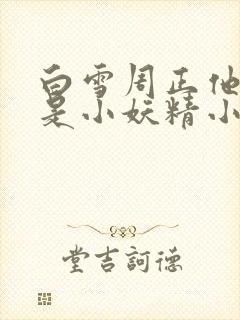 白雪周正他
是小妖精小
堂吉訶德